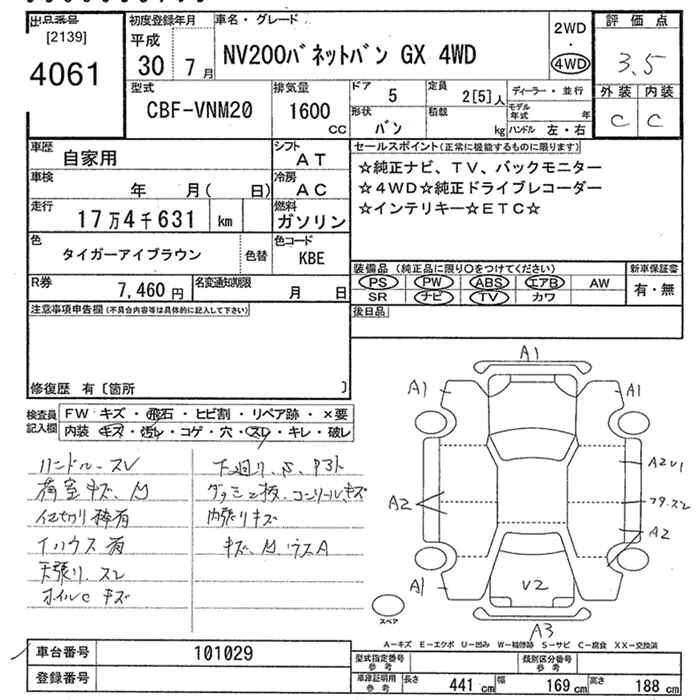 出品番号
[2139]
4061
初度登録年月
平成
30 7月
車名・グレード
NV200バネットバン GX 4WD
2WD
・
4WD
評価点
3.5
外装 内装
C C
型式
CBF-VNM20
排気量
1600
CC
ドア 5
定員 2[5]人
ディーラー・並行
形状 バン
積載 kg
モデル年式 年
ハンドル 左・右
車歴 自家用
シフト AT
車検 年 月( 日)
冷房 AC
走行 17万4千631 km
燃料 ガソリン
色 タイガーアイブラウン
色替
色コード KBE
R券 7,460円
名変通知期限 月 日
セールスポイント(正常に機能するものに限ります)
☆純正ナビ、TV、バックモニター
☆4WD☆純正ドライブレコーダー
☆インテリキー☆ETC☆
装備品 (純正品に限り〇をつけてください)
新車保証書
PS PW ABS エアB AW
有・無
SR ナビ TV カワ
後日品
注意事項申告欄(不具合内容等は具体的に記入して下さい)
修復歴 有〔箇所 〕
検査員記入欄
FW キズ・飛石・ヒビ割・リペア跡・×要
内装 キズ・汚レ・コゲ・穴・スレ・キレ・破レ
ハンドル-スレ
荷室キズ、M
イハウス有
天張り.スレ
ホイルC キズ
下廻り、S、
内張りキズ
キズ、M、ウスA
A1
A1
A1
A2
A2U1
A2
A1
V2
A3
スペア
A-キズ E-エクボ U-凹み W-補修跡 S-サビ C-腐食 XX-交換済
車台番号 101029
登録番号
型式指定番号 参考
類別区分番号 参考
車庫証明用 参考
長さ 441cm 幅 169cm 高さ 188cm